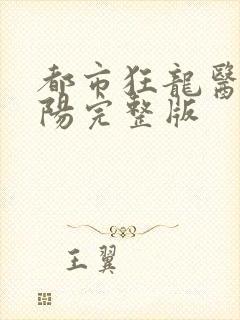 都市狂龍醫
陽完整版
王翼